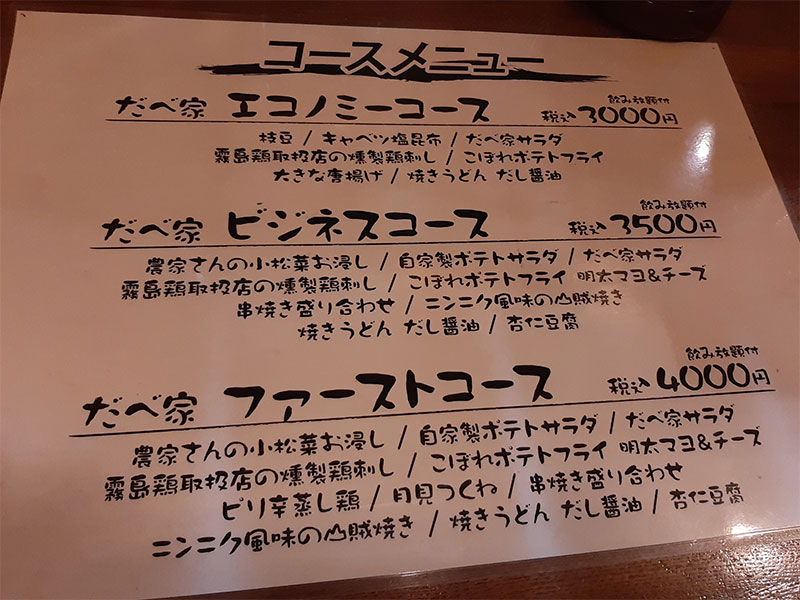 コースメニュー
だべ家 エコノミーコース 飲み放題付 税込3000円
枝豆 / キャベツ塩昆布 / だべ家サラダ
霧島鶏取扱店の燻製鶏刺し / こぼれポテトフライ
大きな唐揚げ / 焼きうどん だし醤油
だべ家 ビジネスコース 飲み放題付 税込3500円
農家さんの小松菜お浸し / 自家製ポテトサラダ / だべ家サラダ
霧島鶏取扱店の燻製鶏刺し / こぼれポテトフライ 明太マヨ&チーズ
串焼き盛り合わせ / ニンニク風味の山賊焼き
焼きうどん だし醤油 / 杏仁豆腐
だべ家 ファーストコース 飲み放題付 税込4000円
農家さんの小松菜お浸し / 自家製ポテトサラダ / だべ家サラダ
霧島鶏取扱店の燻製鶏刺し / こぼれポテトフライ 明太マヨ&チーズ
ピリ辛蒸し鶏 / 月見つくね / 串焼き盛り合わせ
ニンニク風味の山賊焼き / 焼きうどん だし醤油 / 杏仁豆腐